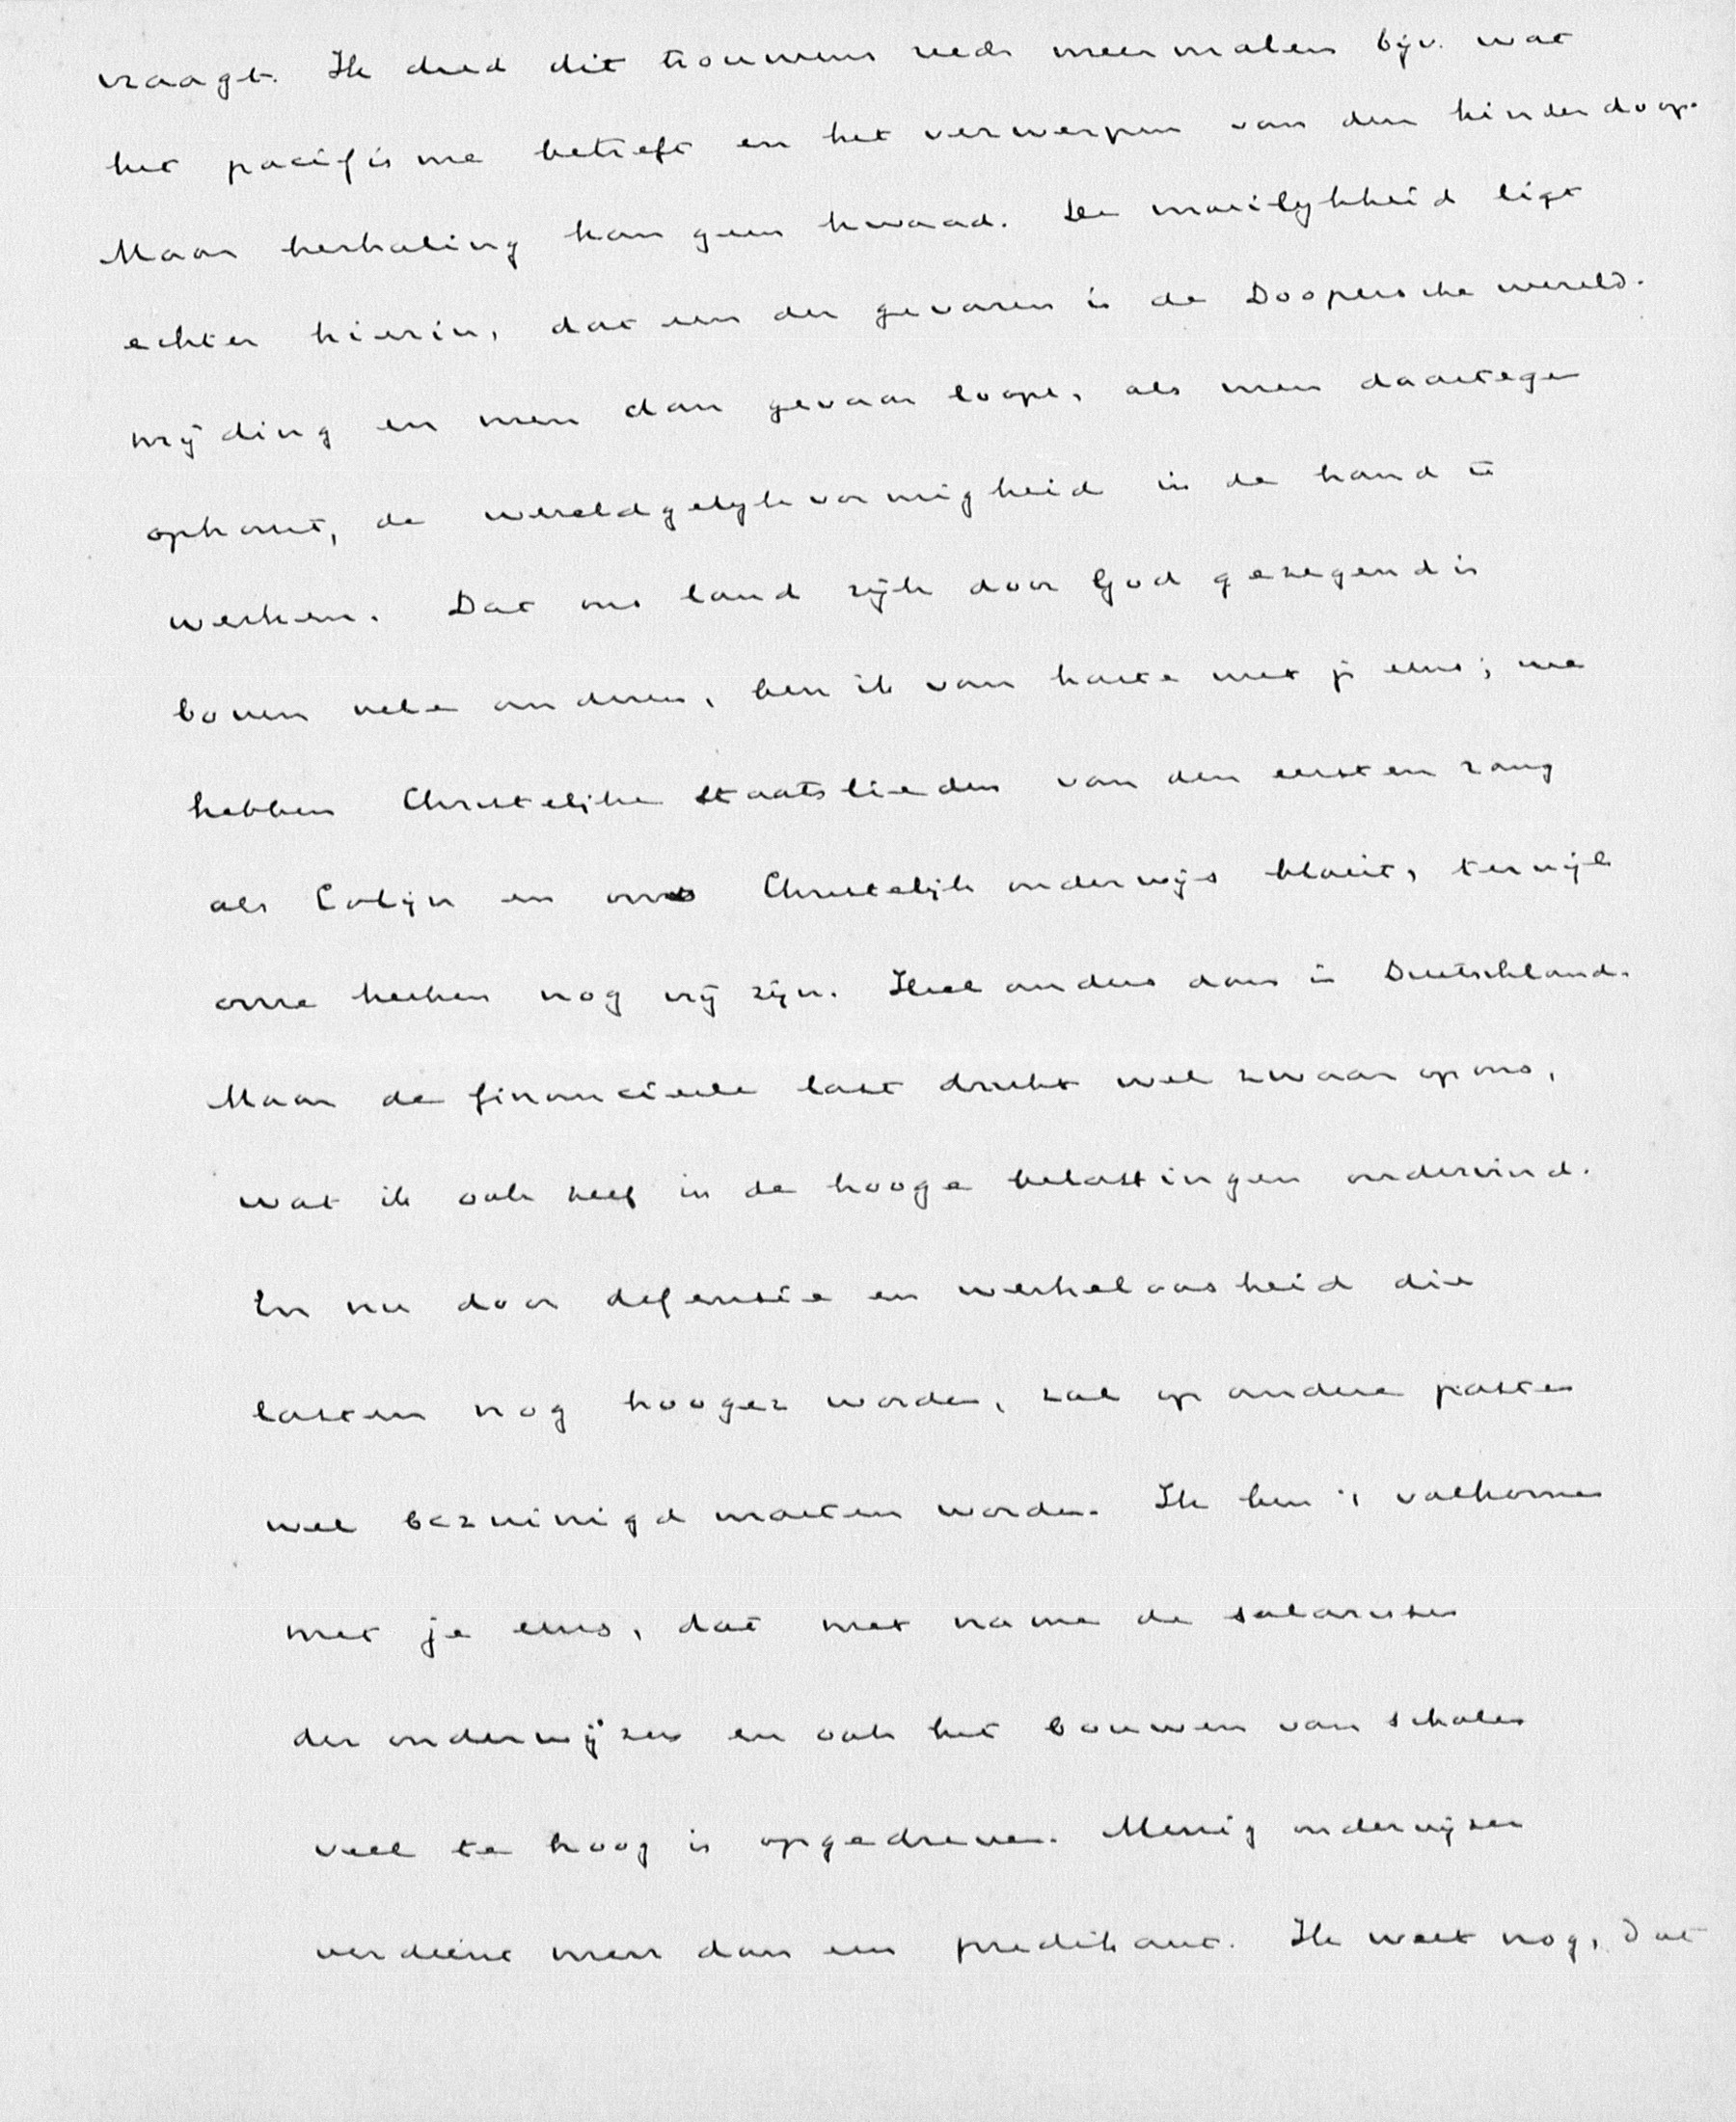 vraagt. Ik deed dit trouwens reeds meermalen bijv. wat
het pacifisme betreft en het verwerpen van den kinderdoop.
Maar herhaling kan geen kwaad. De moeilijkheid ligt
echter hierin, dat een der gevaren is de Doopersche wereld-
mijding en men dan gevaar loopt, als men daartegen
opkomt, de wereldgelijkvormigheid in de hand te
werken. Dat ons land rijk door God gezegend is
boven vele anderen, ben ik van harte met je eens; we
hebben Christelijke staatslieden van den eersten rang
als Colijn en ons Christelijk onderwijs bloeit, terwijl
onze kerken nog vrij zijn. Heel anders dan in Duitschland.
Maar de financieele last drukt wel zwaar op ons,
wat ik ook zelf in de hooge belastingen ondervind.
En nu door defensie en werkeloosheid die
lasten nog hooger worden, zal op andere posten
wel bezuinigd moeten worden. Ik ben 't volkomen
met je eens, dat met name de salarissen
der onderwijzers en ook het bouwen van scholen
veel te hoog is opgedreven. Menig onderwijzer
verdient meer dan een predikant. Ik weet nog, dat